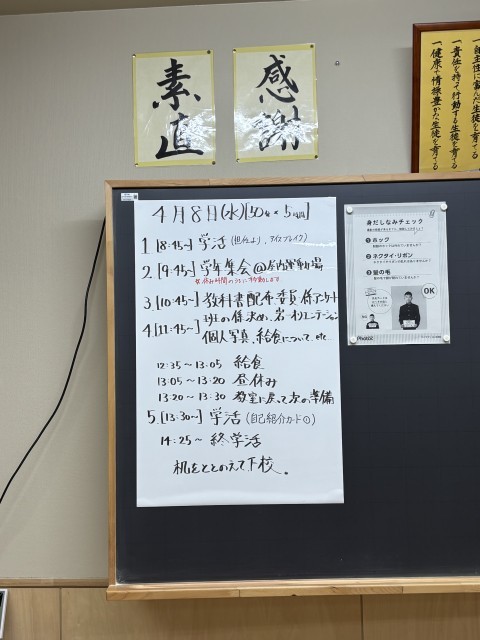 素直
感謝
一、責任を持って行動する生徒を育てる
一、健康で情操豊かな生徒を育てる
4月8日(水)[50分×5時間]
1.[8:45~]学活(担任より,アイスブレイク)
2.[9:45~]学年集会@屋内運動場
※休み時間のうちに移動します
3.[10:45~]教科書配布,委員,係アンケート
4.[11:45~]班の係決め,オリエンテーション
個人写真,給食について,etc
12:35~13:05 給食
13:05~13:20 昼休み
13:20~13:30 教室に戻って次の準備
5.[13:30~]学活(自己紹介カード①)
14:25~ 終学活
机をととのえて下校。
身だしなみチェック
1 ホック
2 ネクタイ・リボン
3 髪の毛
OK